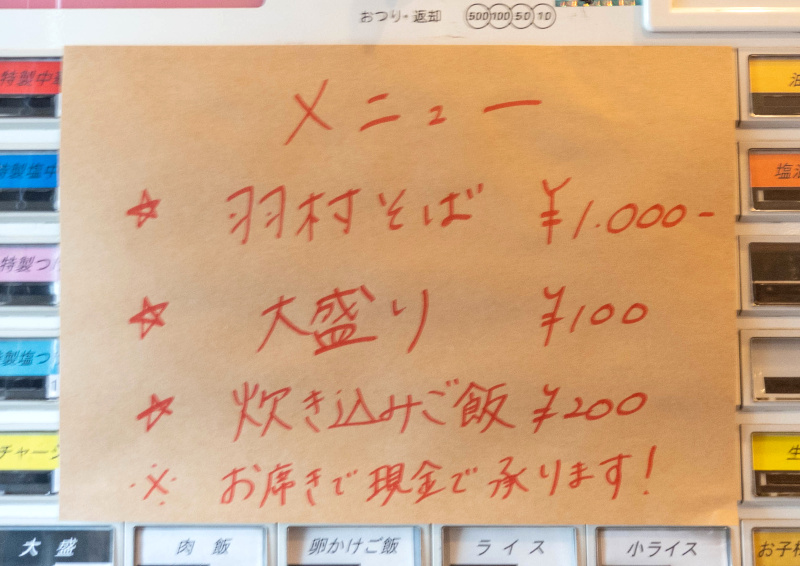 おつり・返却 500 100 50 10
メニュー
☆ 羽村そば ¥1.000-
☆ 大盛り ¥100
☆ 炊き込みご飯 ¥200
※ お席きで現金で承ります!
特製中
特製塩中
特製つ
製塩つ
チャー
塩
生
大盛
肉飯
卵かけご飯
ライス
小ライス
お子様